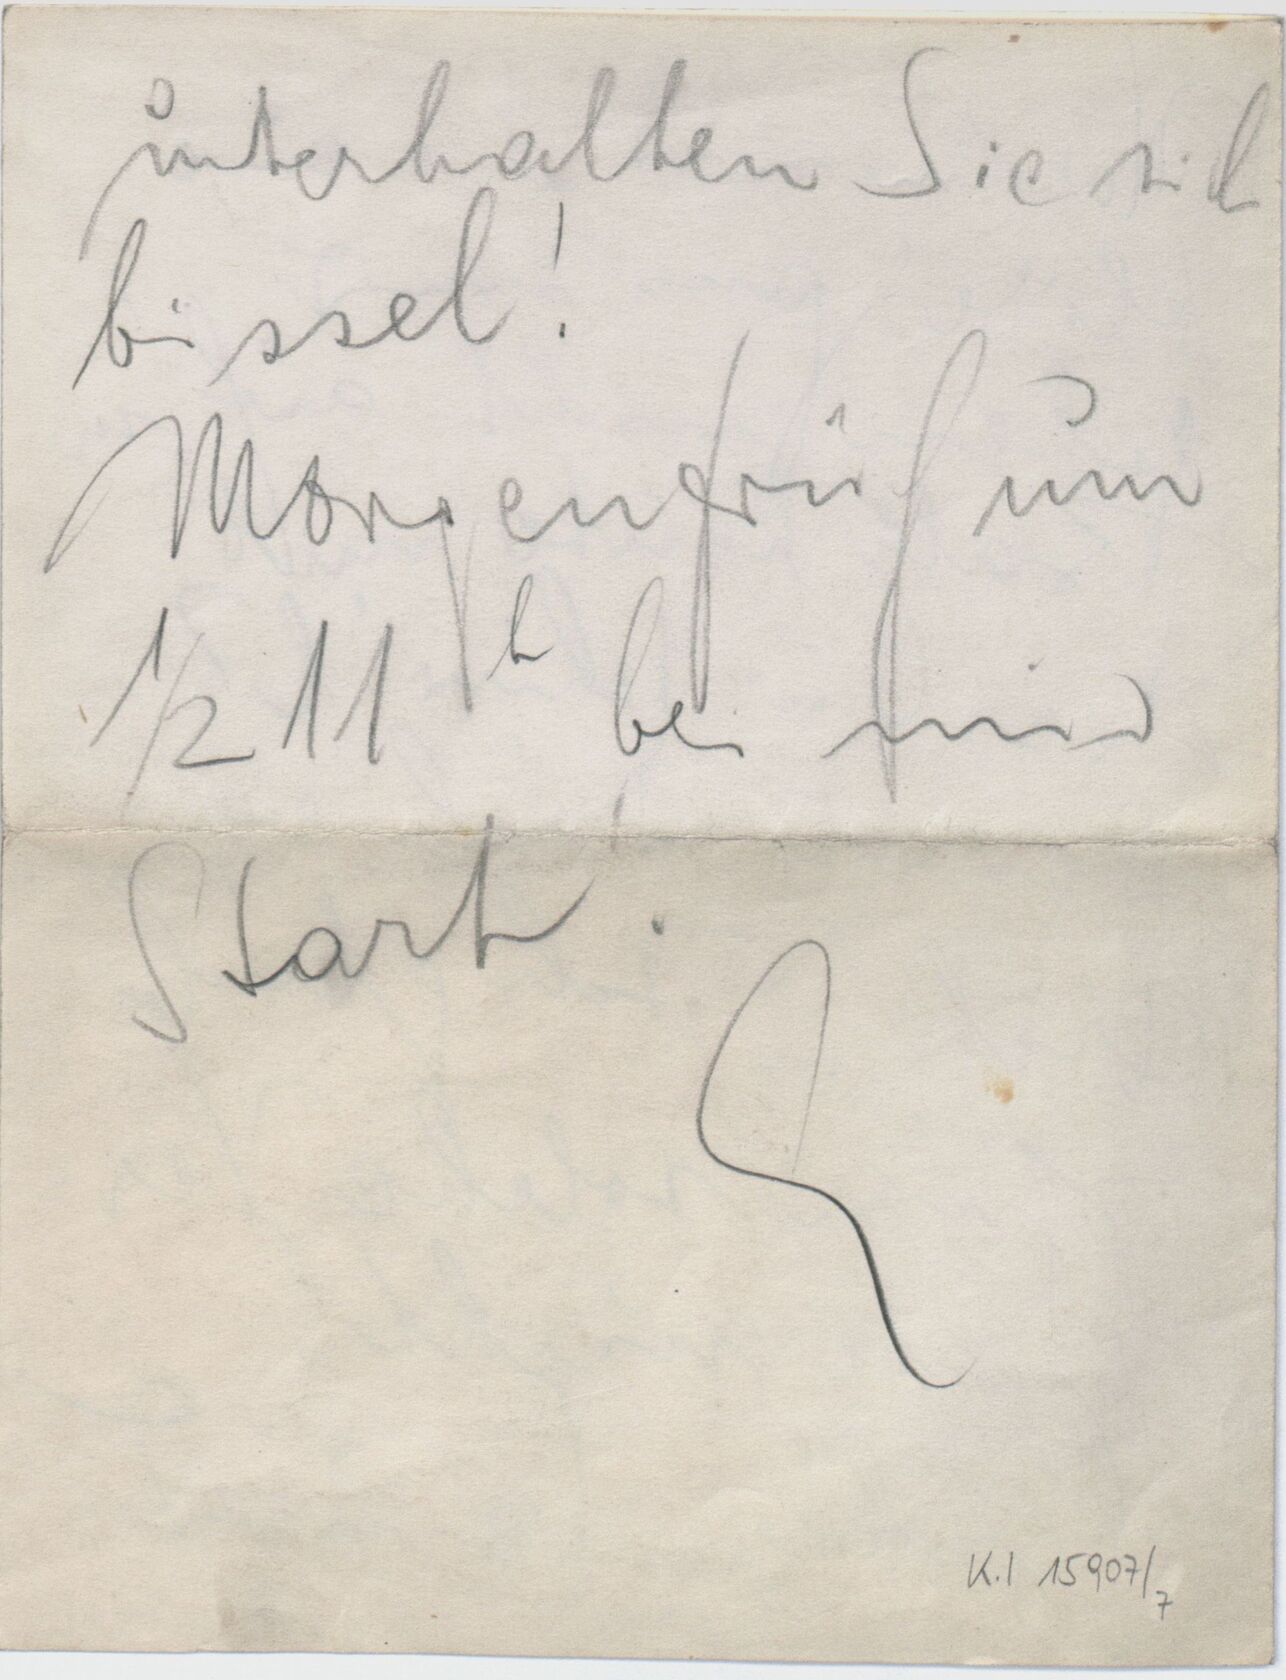 unterhalten Sie sich
bissel!
Morgen früh um
1/2 11 h bei mir
Start.
K.I 15907/7